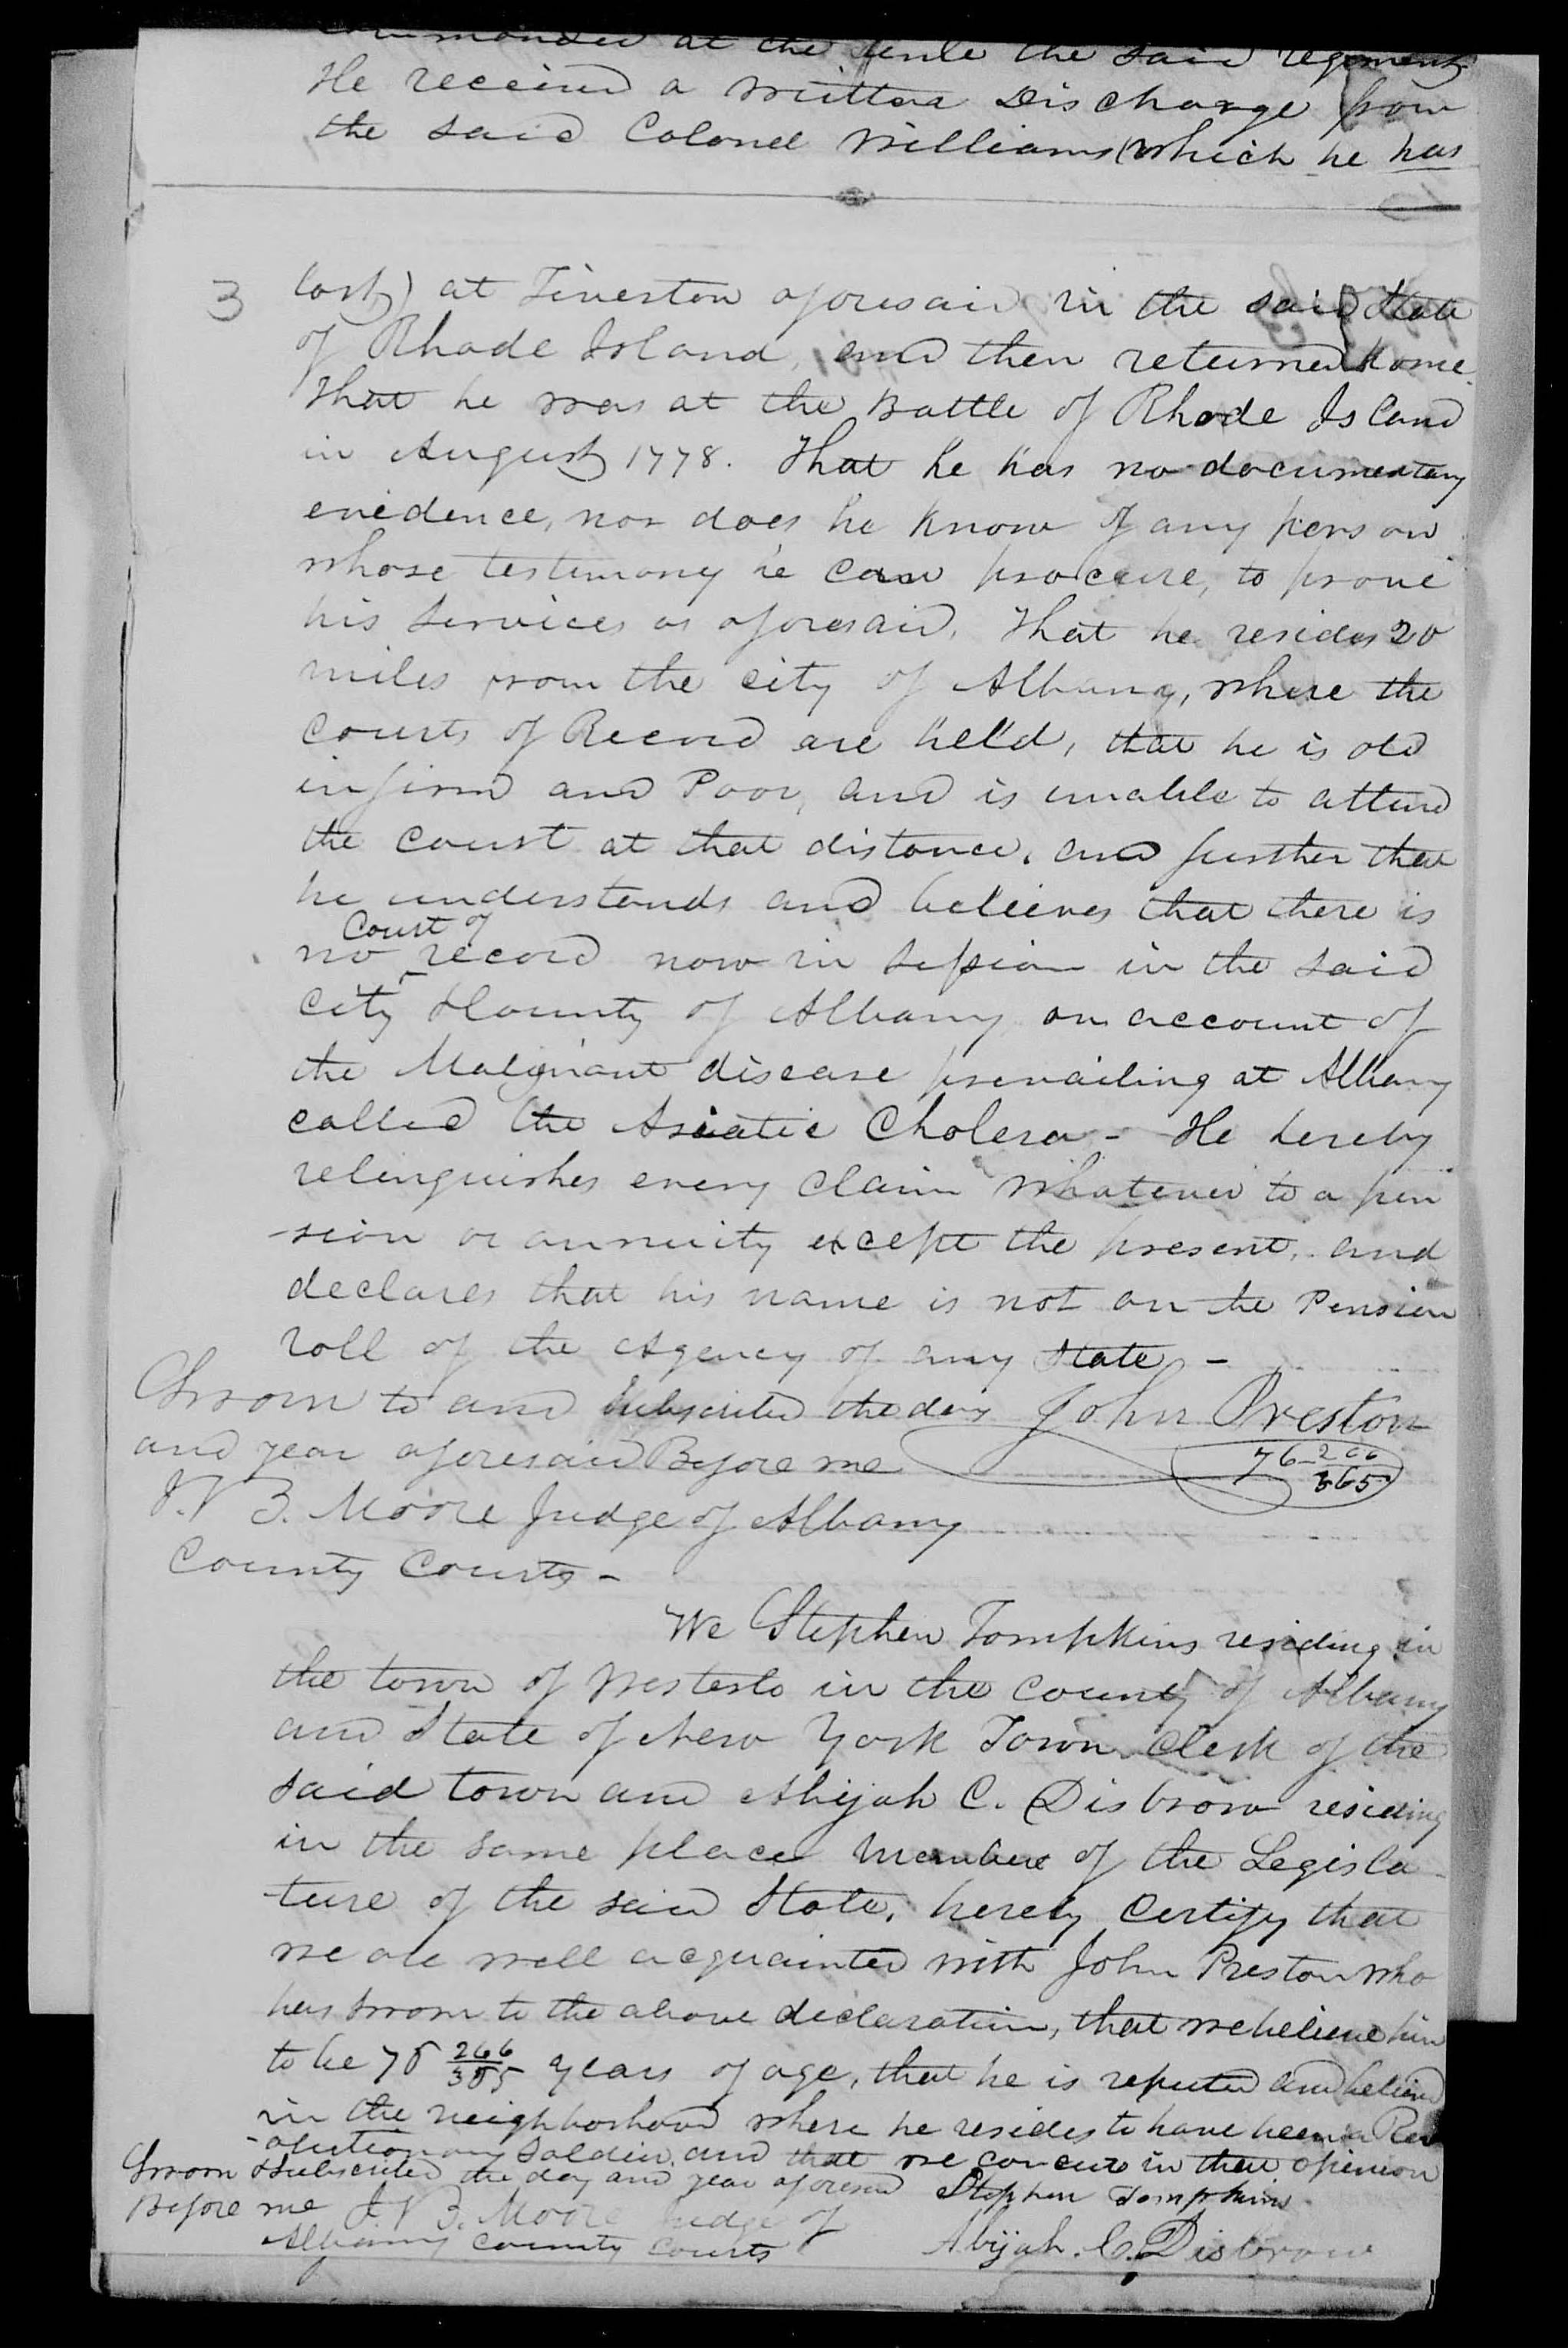 commanded at the time the said regiment
He received a written Discharge from
the said Colonel Williams (which he has
3
lost) at Tiverton aforesaid in the said State
of Rhode Island, and then returned home.
That he was at the Battle of Rhode Island
in August 1778. That he has no documentary
evidence, nor does he know of any person
whose testimony he can procure, to prove
his services as aforesaid. That he resides 20
miles from the city of Albany, where the
courts of Record are held, that he is old
infirm and Poor, and is unable to attend
the court at that distance, and further that
he understands and believes that there is
Court of
no record now in session in the said
city & County of Albany on account of
the Malignant disease prevailing at Albany
called the Asiatic Cholera - He hereby
relinquishes every claim whatever to a pen
-sion or annuity except the present, and
declares that his name is not on the Pension
roll of the Agency of any State -
Sworn to and subscribed the day John Preston
and year aforesaid Before me 76 266/365
J. V B. Moore Judge of Albany
County Courts -
We Stephen Tompkins residing in
the town of Westerlo in the County of Albany
and State of New York Town Clerk of the
said town and Abijah C. Disbrow residing
in the same place member of the Legisla
-ture of the said State, hereby certify that
we are well acquainted with John Preston who
has sworn to the above declaration, that we believe him
to be 76 266/365 years of age, that he is reputed and believed
in the neighborhood where he resides to have been a Rev
-olutionary soldier, and that we concur in that opinion
Sworn & subscribed the day and year aforesaid Stephen Tompkins
Before me J. V B. Moore Judge of
Albany County Courts Abijah. C. Disbrow